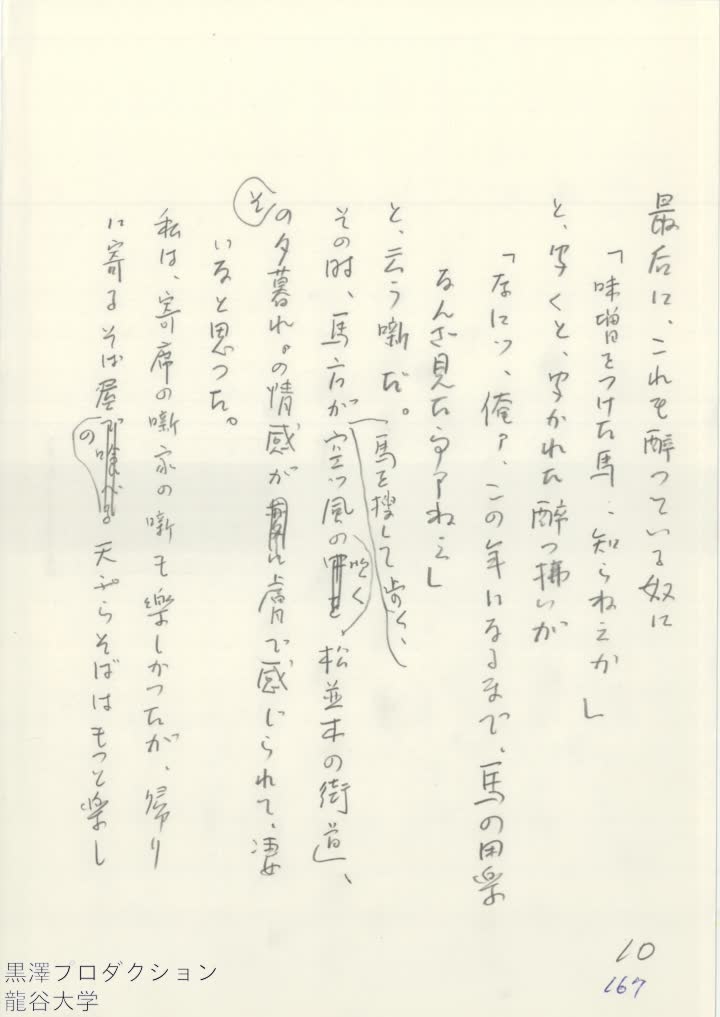 最后に、これも醉つている奴に
「味噌をつけた馬、知らねえか」
と、聞くと、聞かれた醉つ拂いが
「なにッ、俺ァ、この年になるまで、馬の田楽
なんざ見た事アねえ」
と、云う噺だ。
馬を捜して歩く、
その時、馬方が空ッ風の吹く、松並木の街道、
その夕暮れの情感が膚で感じられて、凄
いると思つた。
私は、寄席の噺家の噺も楽しかつたが、帰り
に寄るそば屋の天ぷらそばはもつと楽し
10
167
黒澤プロダクション
龍谷大学